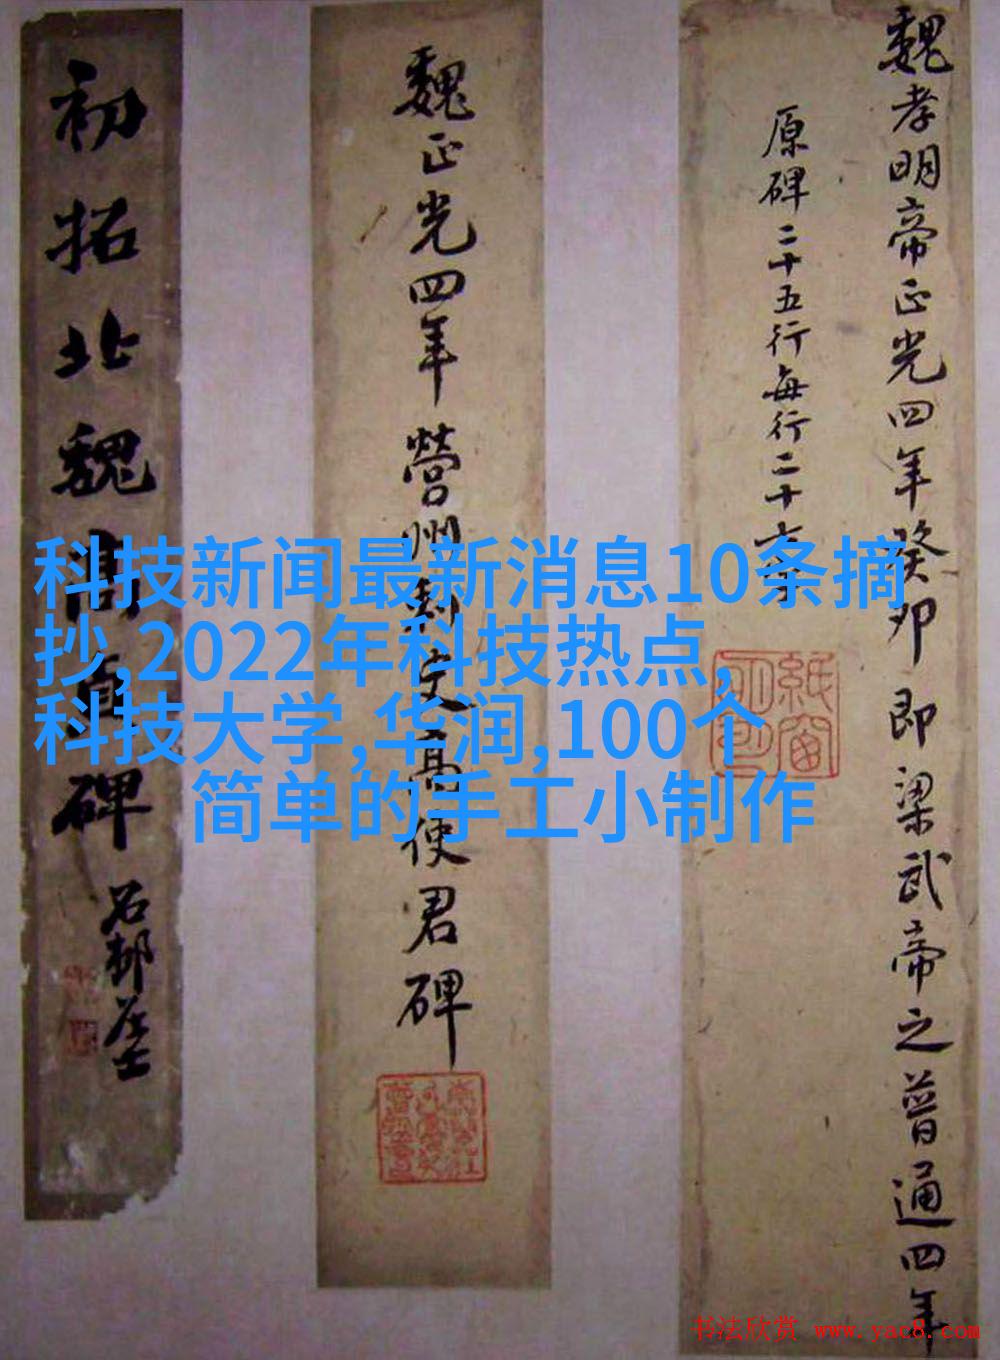 魏孝明帝正光四年癸卯即梁武帝之普通四年
原碑二十五行每行二十
魏正光四年營州刺史高使君碑
初拓北魏高貞碑
石邨居士
科技新闻最新消息10条摘
抄,2022年科技热点,
科技大学,华润,100个
简单的手工小制作
书法欣赏 www.yac8.com